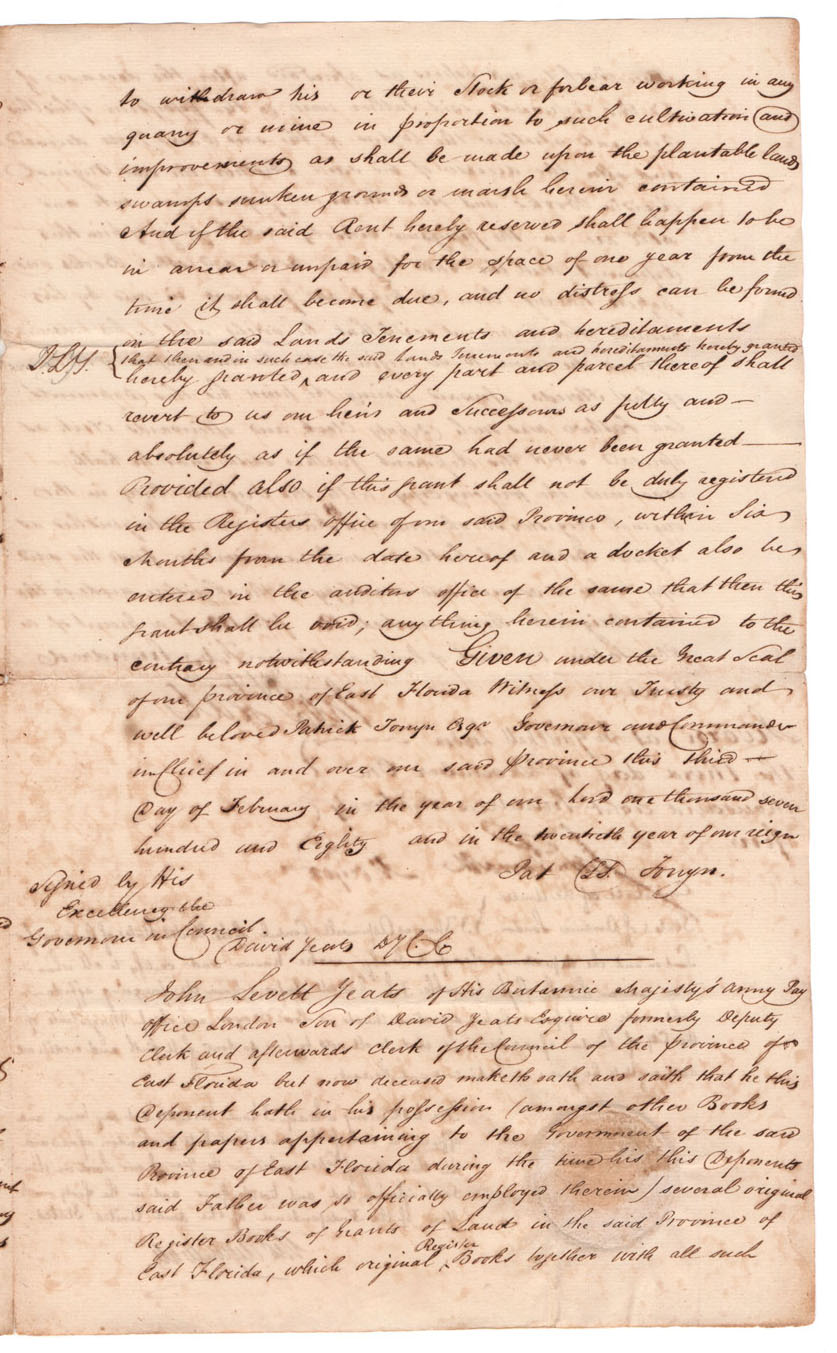 to withdraw his or their Stock or forbear working in any
quarry or mine in proportion to such cultivation and
improvements as shall be made upon the plantable lands
swamps sunken grounds or marsh herein contained
And if the said Rent hereby reserved shall happen to be
in arrear or unpaid for the space of one year from the
time it shall become due, and no distress can be found
in the said Lands Tenements and hereditaments
that then and in such case the said Lands Tenements and hereditaments hereby granted
hereby granted, and every part and parcel thereof shall
revert to us our heirs and Successours as fully and
absolutely as if the same had never been granted
Provided also if this grant shall not be duly registered
in the Registers office of our said Province, within Six
Months from the date hereof and a docket also be
entered in the auditors office of the same that then this
grant shall be void; any thing herein contained to the
contrary notwithstanding Given under the Great Seal
of our province of East Florida Witness our Trusty and
well beloved Patrick Tonyn Esqr. Governour and Commander
in Chief in and over our said Province this third
Day of February in the year of our Lord one thousand seven
hundred and Eighty and in the twentieth year of our reign
Pat Tonyn.
Signed by His
Excellency the
Governour in Council.
David Yeats DyCC
John Levett Yeats of His Britannic Majesty's Army Pay
office London Son of David Yeats Esquire formerly Deputy
Clerk and afterwards Clerk of the Council of the Province of
East Florida but now deceased maketh oath and saith that he this
Deponent hath in his possession (amongst other Books
and papers appertaining to the Government of the said
Province of East Florida during the time his this Deponents
said Father was so officially employed therein) several original
Register Books of Grants of Land in the said Province of
East Florida, which original Register Books together with all such